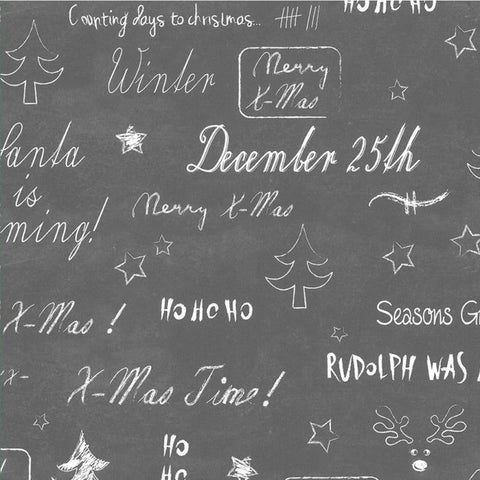 HO HO HO
Counting days to christmas...
Winter
Merry
X-Mas
December 25th
Santa
is
ming!
Merry X-Mas
X-Mas !
HO HO HO
Seasons G
RUDOLPH WAS
X-
X-Mas Time!
HO
HO